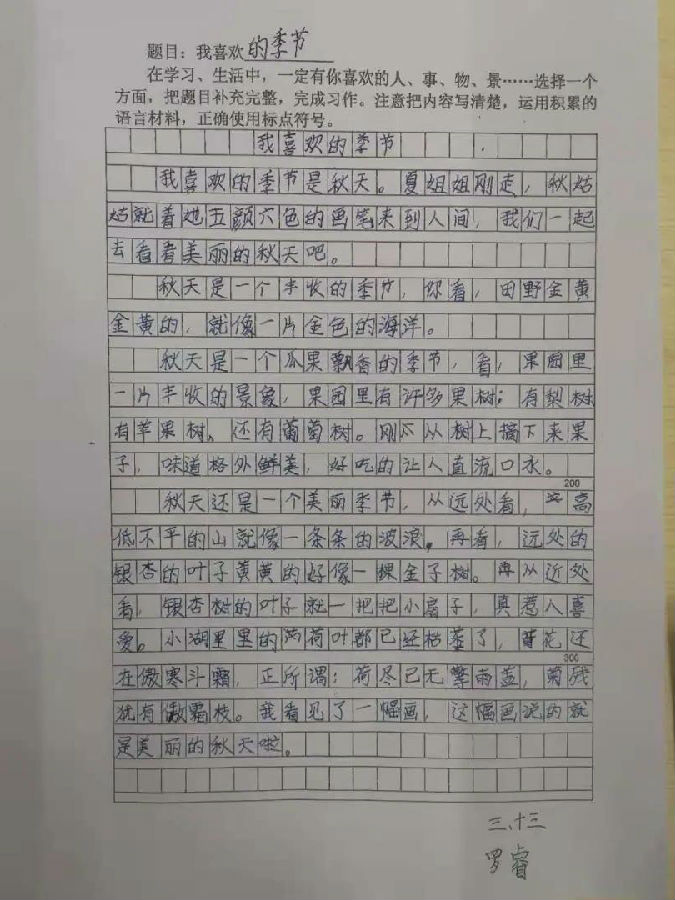 题目：我喜欢的季节
在学习、生活中，一定有你喜欢的人、事、物、景……选择一个
方面，把题目补充完整，完成习作。注意把内容写清楚，运用积累的
语言材料，正确使用标点符号。
我喜欢的季节
我喜欢的季节是秋天。夏姐姐刚走，秋姑
姑就着她五颜六色的画笔来到人间，我们一起
去看看美丽的秋天吧。
秋天是一个丰收的季节，你看，田野金黄
金黄的，就像一片金色的海洋。
秋天是一个瓜果飘香的季节，看，果园里
一片丰收的景象，果园里有许多果树：有梨树
有苹果树，还有葡萄树。刚从树上摘下来果
子，味道格外鲜美，好吃的让人直流口水。
200
秋天还是一个美丽季节，从远处看，高
低不平的山就像一条条的波浪。再看，远处的
银杏的叶子黄黄的好像一棵金子树。再从近处
看，银杏树的叶子就一把把小扇子，真惹人喜
爱。小湖里里的荷叶都已经枯萎了，花还
300
在傲寒斗霜，正所谓：荷尽已无擎雨盖，菊残
犹有傲霜枝。我看见了一幅画，这幅画说的就
是美丽的秋天啦。
三、十三
罗睿